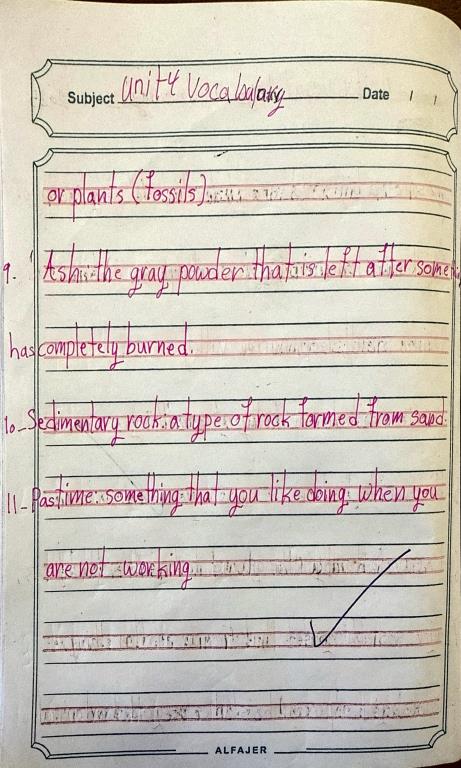 Subject Unit 4 Vocabulary Date / /
or plants (fossils)
9. Ash: the gray powder that is left after
has completely burned.
10_ Sedimentary rock: a type of rock formed from sand.
11_ Pastime: something that you like doing when you
are not working
ALFAJER